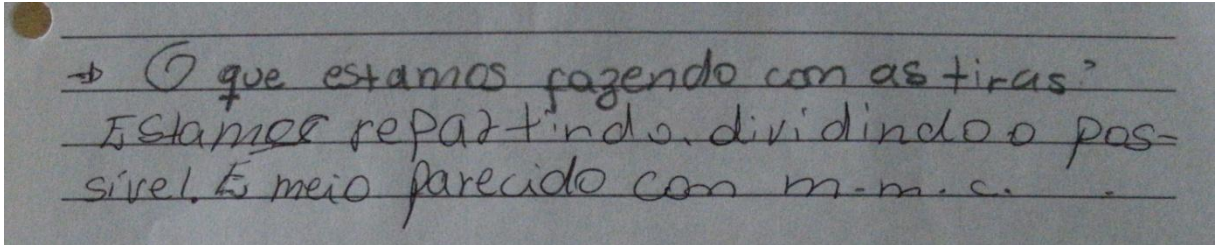 → O que estamos fazendo com as tiras?
Estamos repartindo, dividindo o pos=
sível. É meio parecido com m.m.c.